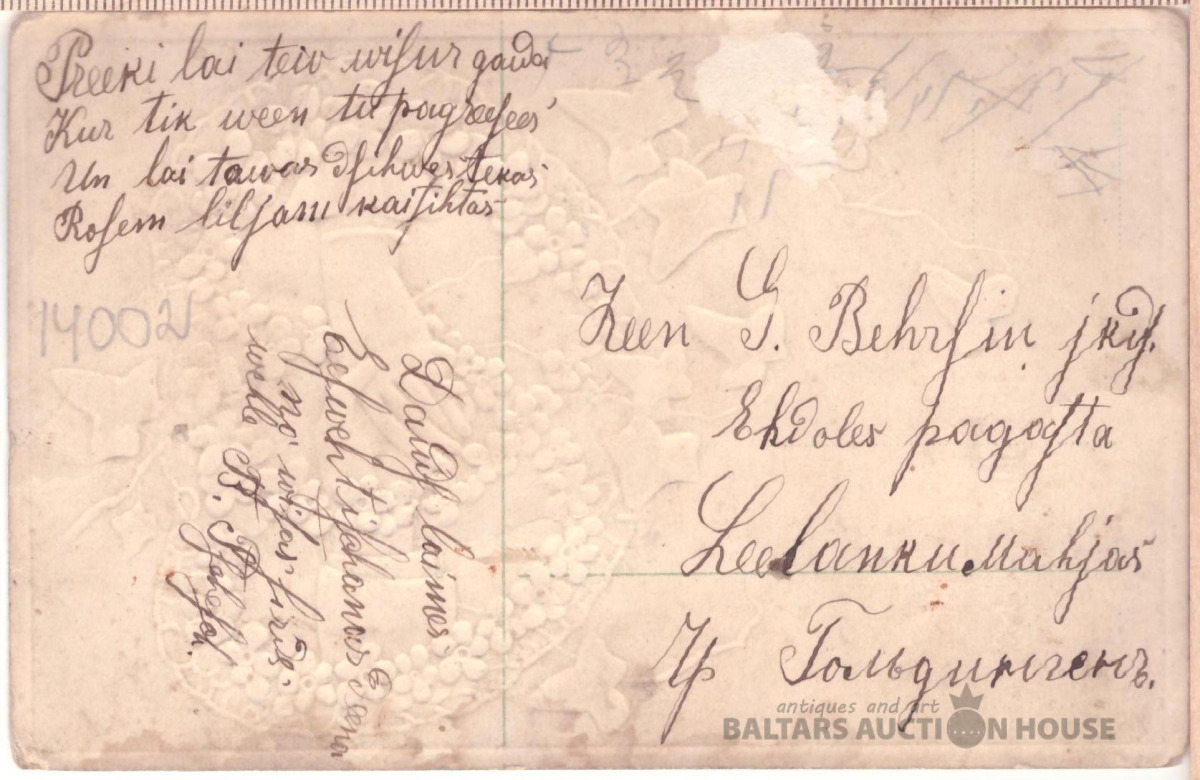 Preeki lai tew wiſur gaida
Kur tik ween tu pagreeſees
Un lai tawas Dſihwes tekas
Roſem liljam kaiſihtas
14002
Daudſ laimes
Eeſwehtiſchanas Deena
no wiſas ſirds
wehle
G. Behrſin jkdſ.
Ehdoles pagaſta
Leelanku Mahjas
Гольдингенъ.
antiques and art
BALTARS AUCTION HOUSE